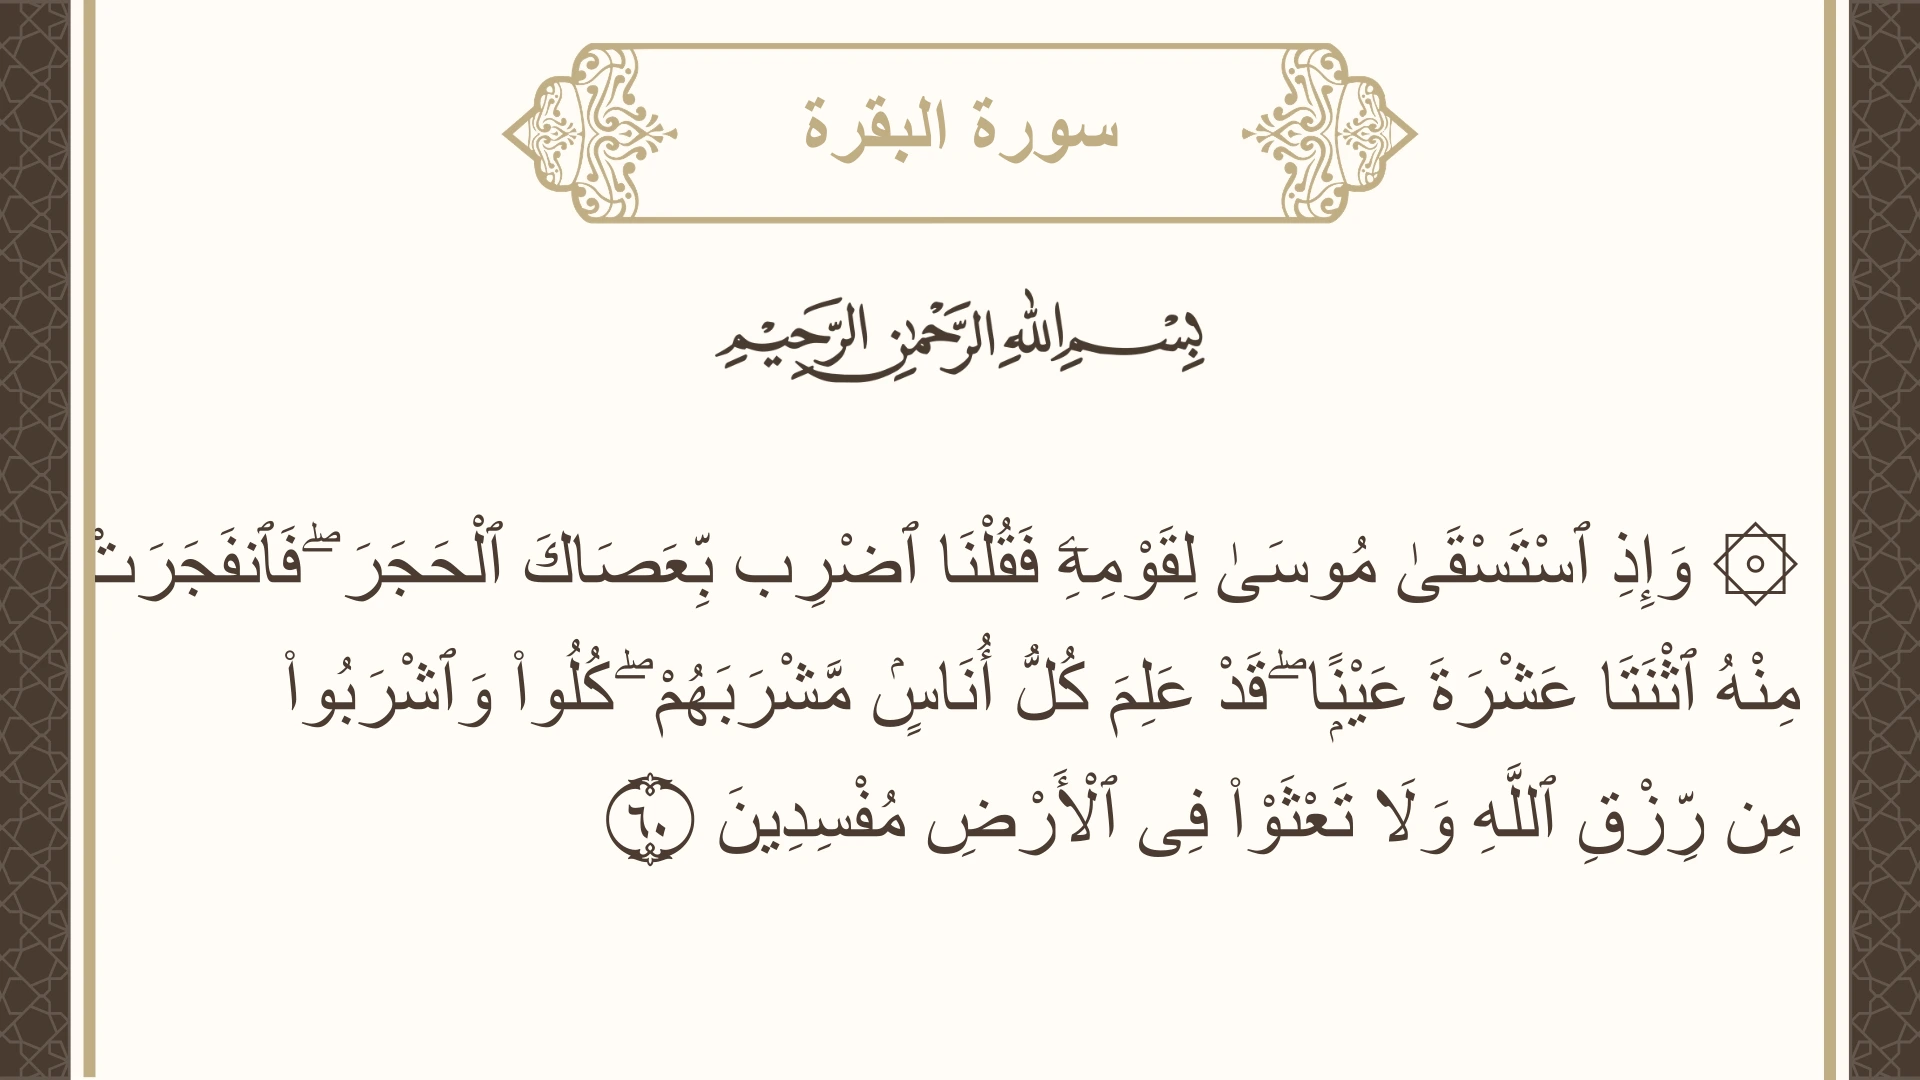 سورة البقرة
بِسْمِ اللهِ الرَّحْمٰنِ الرَّحِيْمِ
۞ وَإِذِ ٱسْتَسْقَىٰ مُوسَىٰ لِقَوْمِهِۦ فَقُلْنَا ٱضْرِب بِّعَصَاكَ ٱلْحَجَرَ ۖ فَٱنفَجَرَتْ
مِنْهُ ٱثْنَتَا عَشْرَةَ عَيْنًۭا ۖ قَدْ عَلِمَ كُلُّ أُنَاسٍۢ مَّشْرَبَهُمْ ۖ كُلُوا۟ وَٱشْرَبُوا۟
مِن رِّزْقِ ٱللَّهِ وَلَا تَعْثَوْا۟ فِى ٱلْأَرْضِ مُفْسِدِينَ ٦٠